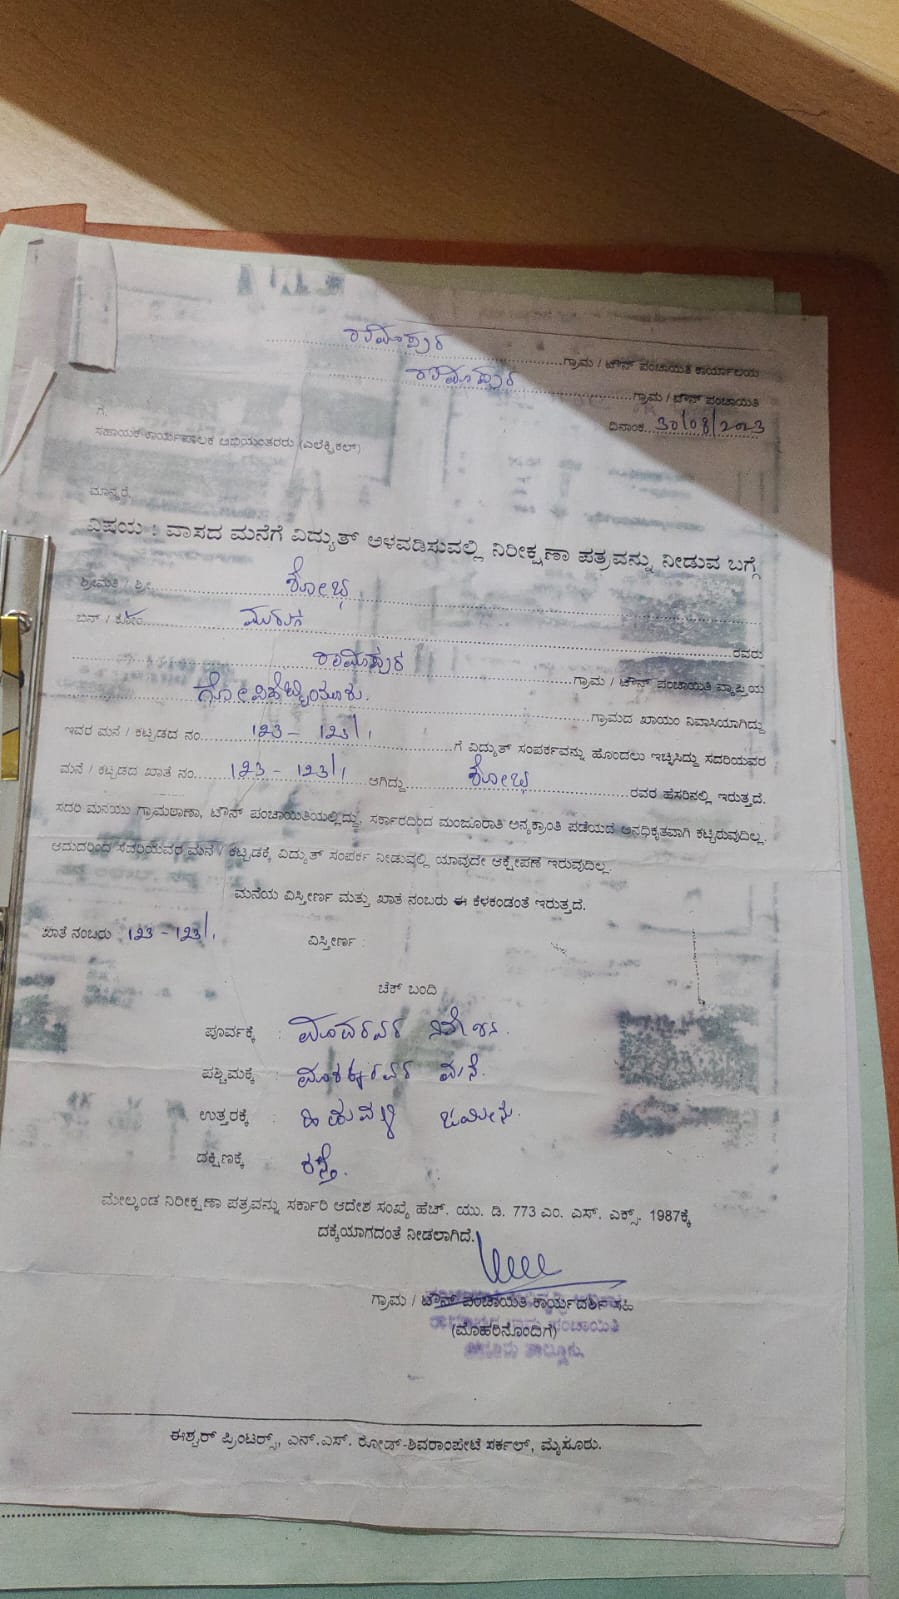 ರಾಮಾಪುರ ಗ್ರಾಮ / ಟೌನ್ ಪಂಚಾಯಿತಿ ಕಾರ್ಯಾಲಯ
ರಾಮಾಪುರ ಗ್ರಾಮ / ಟೌನ್ ಪಂಚಾಯಿತಿ
ದಿನಾಂಕ 30/08/2023
ಗೆ,
ಸಹಾಯಕ ಕಾರ್ಯಪಾಲಕ ಅಭಿಯಂತರರು (ಎಲೆಕ್ಟ್ರಿಕಲ್)
ಮಾನ್ಯರೆ,
ವಿಷಯ : ವಾಸದ ಮನೆಗೆ ವಿದ್ಯುತ್ ಅಳವಡಿಸುವಲ್ಲಿ ನಿರೀಕ್ಷಣಾ ಪತ್ರವನ್ನು ನೀಡುವ ಬಗ್ಗೆ
ಶ್ರೀಮತಿ / ಶ್ರೀ ಶೋಭ
ಬಿನ್ / ಕೋಂ ರವರು
ರಾಮಾಪುರ ಗ್ರಾಮ / ಟೌನ್ ಪಂಚಾಯಿತಿ ವ್ಯಾಪ್ತಿಯ
ಗ್ರಾಮದ ಖಾಯಂ ನಿವಾಸಿಯಾಗಿದ್ದು
ಇವರ ಮನೆ / ಕಟ್ಟಡದ ನಂ 123 - 123/1 ಗೆ ವಿದ್ಯುತ್ ಸಂಪರ್ಕವನ್ನು ಹೊಂದಲು ಇಚ್ಛಿಸಿದ್ದು ಸದರಿಯವರ
ಮನೆ / ಕಟ್ಟಡದ ಖಾತೆ ನಂ 123 - 123/1 ಆಗಿದ್ದು ಶೋಭ ರವರ ಹೆಸರಿನಲ್ಲಿ ಇರುತ್ತದೆ.
ಸದರಿ ಮನೆಯು ಗ್ರಾಮಠಾಣಾ, ಟೌನ್ ಪಂಚಾಯಿತಿಯಲ್ಲಿದ್ದು, ಸರ್ಕಾರದಿಂದ ಮಂಜೂರಾತಿ ಅನ್ಯಕ್ರಾಂತಿ ಪಡೆಯದೆ ಅನಧಿಕೃತವಾಗಿ ಕಟ್ಟಿರುವುದಿಲ್ಲ.
ಆದುದರಿಂದ ಸದರಿಯವರ ಮನೆ / ಕಟ್ಟಡಕ್ಕೆ ವಿದ್ಯುತ್ ಸಂಪರ್ಕ ನೀಡುವಲ್ಲಿ ಯಾವುದೇ ಆಕ್ಷೇಪಣೆ ಇರುವುದಿಲ್ಲ.
ಮನೆಯ ವಿಸ್ತೀರ್ಣ ಮತ್ತು ಖಾತೆ ನಂಬರು ಈ ಕೆಳಕಂಡಂತೆ ಇರುತ್ತದೆ.
ಖಾತೆ ನಂಬರು 123 - 123/1 ವಿಸ್ತೀರ್ಣ :
ಚೆಕ್ ಬಂದಿ
ಪೂರ್ವಕ್ಕೆ : ನಿವೇಶನ.
ಪಶ್ಚಿಮಕ್ಕೆ : ಮನೆ.
ಉತ್ತರಕ್ಕೆ : ಜಮೀನು.
ದಕ್ಷಿಣಕ್ಕೆ : ರಸ್ತೆ.
ಮೇಲ್ಕಂಡ ನಿರೀಕ್ಷಣಾ ಪತ್ರವನ್ನು ಸರ್ಕಾರಿ ಆದೇಶ ಸಂಖ್ಯೆ ಹೆಚ್. ಯು. ಡಿ. 773 ಎಂ. ಎಸ್. ಎಕ್ಸ್. 1987ಕ್ಕೆ
ದಕ್ಕೆಯಾಗದಂತೆ ನೀಡಲಾಗಿದೆ.
ಗ್ರಾಮ / ಟೌನ್ ಪಂಚಾಯಿತಿ ಕಾರ್ಯದರ್ಶಿ ಸಹಿ
(ಮೊಹರಿನೊಂದಿಗೆ)
ಈಶ್ವರ್ ಪ್ರಿಂಟರ್‍ಸ್, ಎನ್.ಎಸ್. ರೋಡ್-ಶಿವರಾಂಪೇಟೆ ಸರ್ಕಲ್, ಮೈಸೂರು.